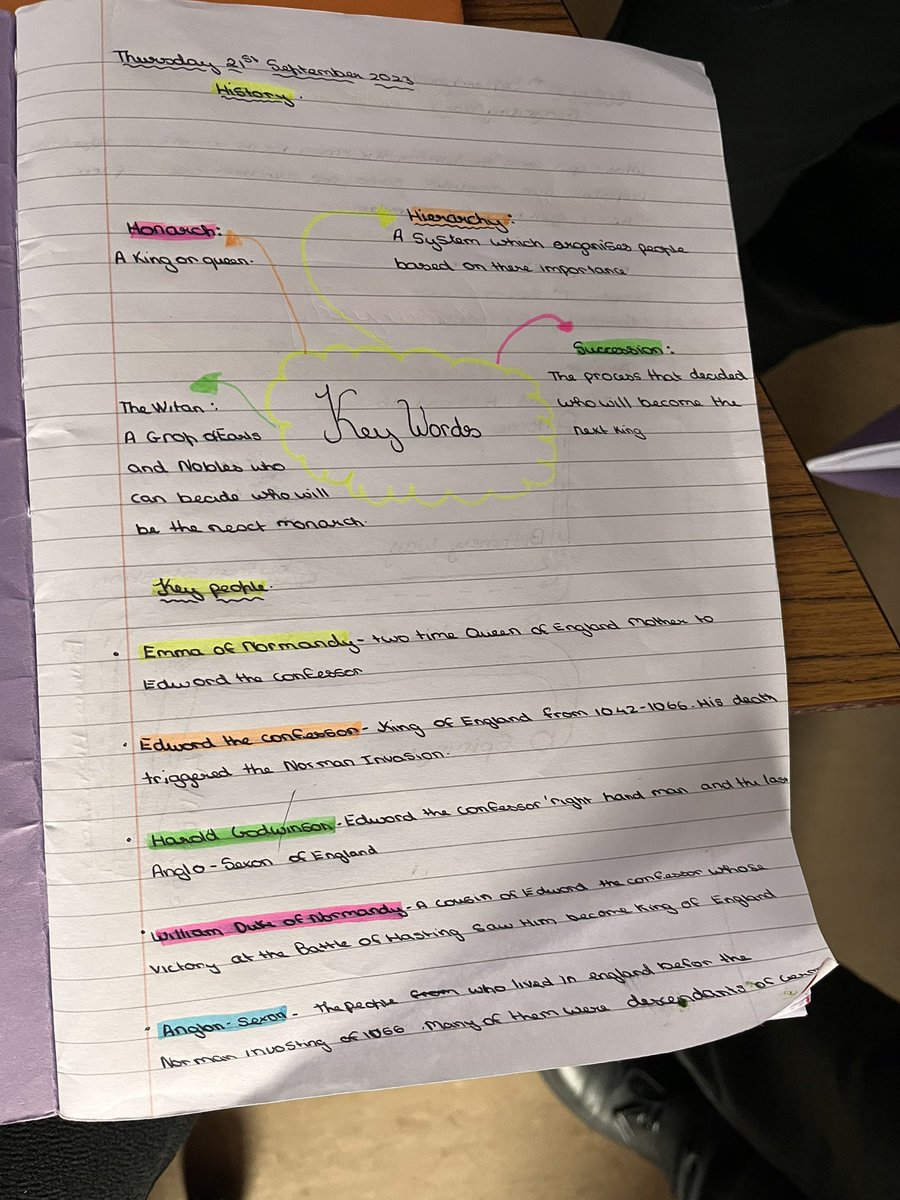 Thursday 21st September 2023
History.
Monarch:
A King or queen.
Hierarchy:
A System which organises people
based on there importance
Succession:
The process that decided
who will become the
next King
The Witan:
A Grop of Earls
and Nobles who
can decide who will
be the next monarch.
Key Words
Key people.
• Emma of Normandy - two time Queen of England Mother to
Edward the confessor
• Edward the confessor - King of England from 1042-1066. His death
triggered the Norman Invasion.
• Harold Godwinson - Edward the confessor 'right hand man and the las
Anglo-Sexon of England
• William Duke of Normandy - A cousin of Edward the confessor whose
victory at the Battle of Hasting Saw Him become King of England
• Anglon-Sexon - the people from who lived in england befor the
Norman invosting of 1066. Many of them were descendants of